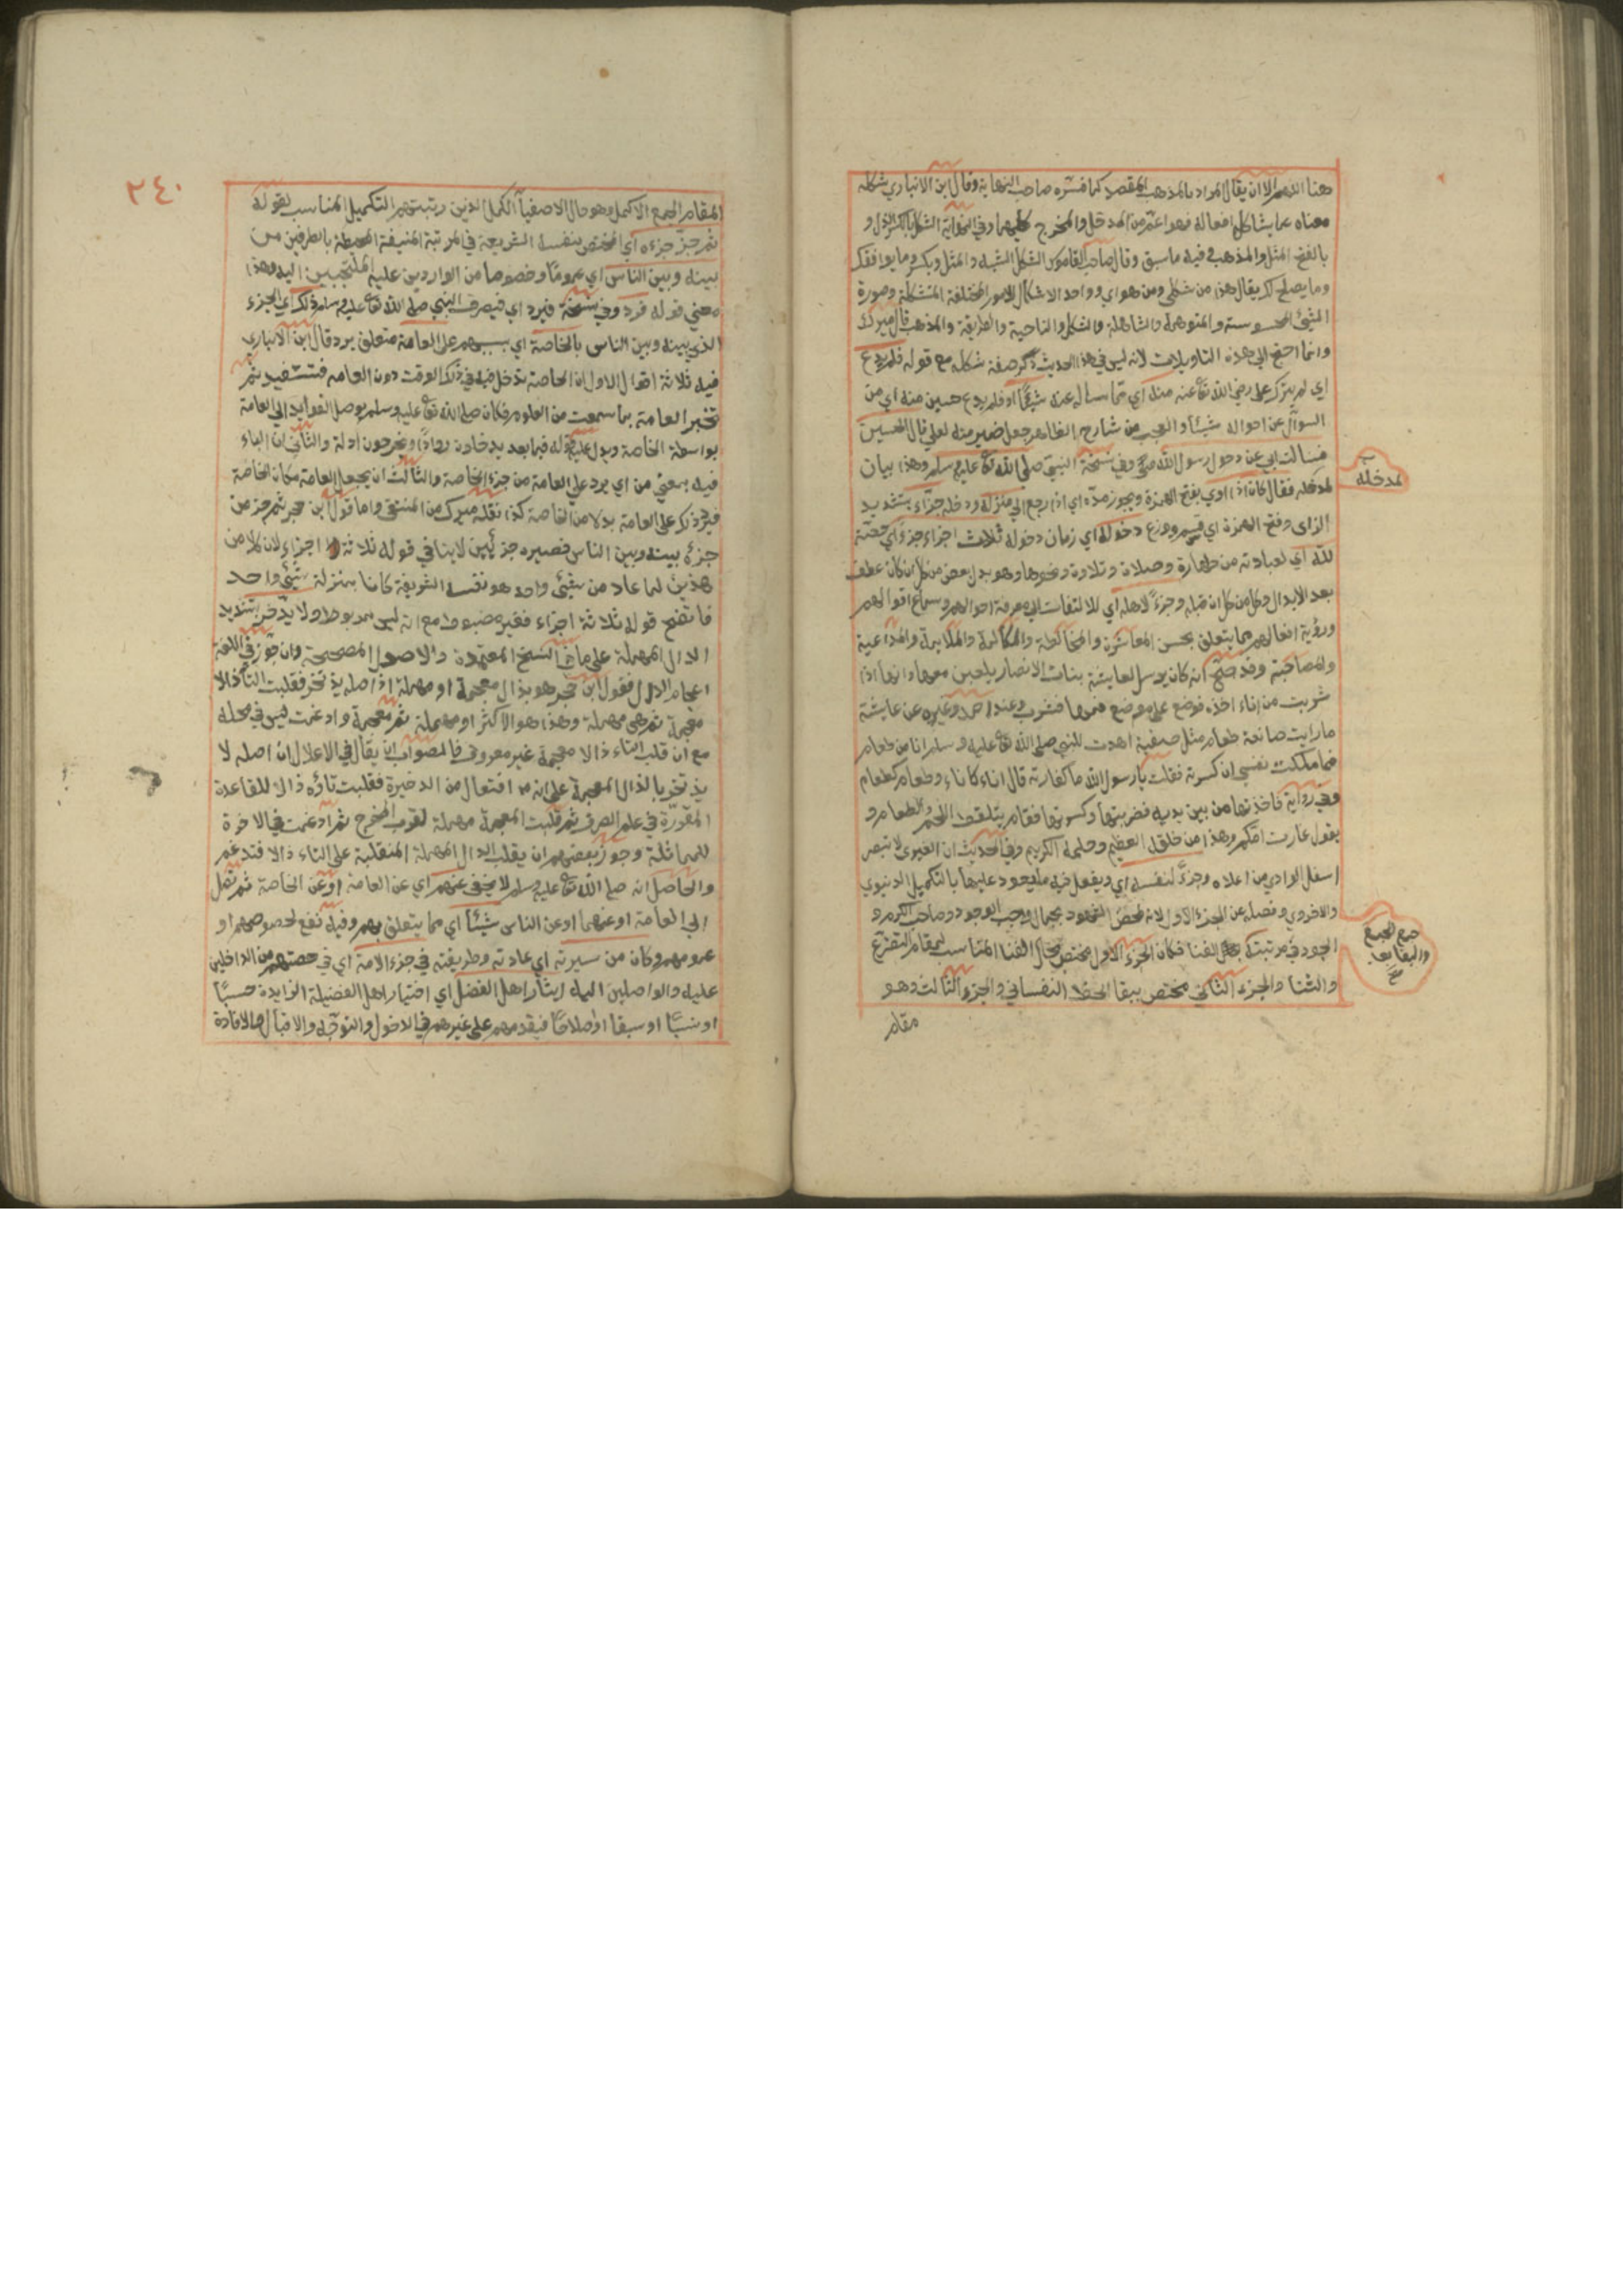 هنا اللهم الا ان يقال المراد بالمذهب المقصد كما فسره صاحب النهاية وقال ابن الانباري شكله
معناه عما يشاكل افعاله فهو اعم من المدخل والمخرج وفي النهاية الشكل بالكسر الدل و
بالفتح المثل والمذهب وفيه ما سبق وقال صاحب القاموس الشكل الشبه والمثل ويكسر وما يوافقك
وما يصلح لك يقال هذا من شكلي ومن هواي وواحد الاشكال للامور المختلفة المشكلة وصورة
الشئ المحسوسة والمتوهمة والشاكلة والشكل والناحية والطريقة والمذهب قال ميرك
وانما احتج الى هذه التاويلات لانه ليس في هذا الحديث ذكر صفة شكله مع قوله فلم يدع
اي لم يترك علي رضي الله تعا عنه منه اي مما سأله عنه شيئا او فلم يدع حسين منه اي من
السوآل عن احواله شيئا والعجب من شارح الظاهر جعل ضمير منه لعلي قال الحسين
فسالت ابي عن دخول رسول الله صلى وفي نسخة النبي صلى الله تعا عليه وسلم وهذا بيان
لمدخله فقال كان اذا اوي بفتح الهمزة ويجوز مده اي اذا رجع الى منزله ودخله جزأ بتشديد
الزاى وفتح الهمزة اي قسم ووزع دخوله اي زمان دخوله ثلاث اجزاء جزءا اي حصة
لله اي لعبادته من طهارة وصلاة وتلاوة ونحوها وهو بدل بعض من كل ان كان عطف
بعد الابدال وكل من كل ان قبله وجزءً لاهله اي للالتفات الى معرفة احوالهم وسماع اقوالهم
ورؤية افعالهم مما يتعلق بحسن المعاشرة والمخالطة والمكالمة والملاعبة والمداعبة
والمصاحبة وقد صح انه كان يرسل لعايشة بنات الانصار يلعبن معها وانها اذا
شربت من اناء اخذه فوضع على موضع فمها فشرب وعند احمد وغيره عن عايشة
ما رايت صانعة طعام مثل صفية اهدت للنبي صلى الله تعا عليه وسلم انا من طعام
فما ملكت نفسي ان كسرته فقلت يا رسول الله ما كفارته قال اناء كاناء وطعام كطعام
وفي رواية فاخذتها من بين يديه فضربتها وكسرتها فقام يتلقط اللحم والطعام و
يقول غارت امكم وهذا من خلقه العظيم وحلمه الكريم وفي الحديث ان الغيرى لا تبصر
اسفل الوادي من اعلاه وجزءً لنفسه اي ويفعل فيه ما يعود عليها بالتكميل الدنيوي
والاخروي وفصله عن الجزء الاول لانه لمحض الشهود بجمال واجب الوجود وصاحب الكرم و
الجود في مرتبتك الفنا فكان الجزء الاول مختص بحال الفنا المناسب لمقام التضرع
والثنا والجزء الثاني مختص ببقا الحظ النفساني والجزء الثالث وهو
مقام
لمدخله
جمع الجمع
والبقا بعد
٢٤٠
المقام الجمع الاكمل وهو حال الاصفيآ الكمل الذين رتبتهم التكميل المناسب لقوله
ثم جزّ جزءه اي المختص بنفسه الشريعة في المرتبة المنيفة المحيطة بالطرفين من
بينه وبين الناس اي عموما وخصوصا من الواردين عليه الملتجين اليه وهذا
معني قوله فرد وفي نسخة فيرد اي فيصرف النبي صلى الله تعا عليه وسلم ذلك اي الجزء
الذي بينه وبين الناس بالخاصة اي بسببهم على العامة متعلق يرد قال ابن الانباري
فيه ثلاثة اقوال الاول ان الخاصة تدخل عليه في ذلك الوقت دون العامه فتستفيد ثم
تخبر العامة بما سمعت من العلوم فكان صلى الله تعا عليه وسلم يوصل الفوايد الى العامة
بواسطة الخاصة ويدل عليه قوله فيما بعد يدخلون روادا ويخرجون ادلة والثاني ان الباء
فيه بمعني من اي يرد على العامة من جزء الخاصة والثالث ان يجعل العامة مكان الخاصة
فيرد ذلك على العامة بدلا من الخاصة كذا نقله ميرك من المنتقى واما قول ابن حجر ثم جز من
جزءه بينه وبين الناس فصيره جزئين لا ينافي قوله ثلاثة اجزاء لان كلا من
هذين لما عاد من شئ واحد هو نفسه الشريفة كانا بمنزلة شئ واحد
فاتضح قوله ثلاثة اجزاء فغير مضبوط مع انه ليس مربوط ولا يدّخر بتشديد
الدال المهملة على ما في النسخ المعتمدة والاصول المصححة وان جوز في اللغة
اعجام الدال فقول ابن حجر هو بذال معجمة او مهملة اذ اصله يذتخر فقلبت التا ذالا
معجمة ثم هي مهملة وهذا هو الاكثر او مهملة ثم معجمة وادغمت ليس في محله
مع ان قلب التاء ذالا معجمة غير معروف فالصواب ان يقال في الاعلال ان اصله لا
يذتخر بالذال المعجمة على انه افتعال من الذخيرة فقلبت تاؤه دالا للقاعدة
المقررة في علم الصرف ثم قلبت المعجمة مهملة لقرب المخرج ثم ادغمت في الاخرة
للمماثلة وجوز بعضهم ان يقلب الدال المهملة المنقلبة على التاء ذالا فتدغم
والحاصل انه صلى الله تعا عليه وسلم لا يخفي عنهم اي عن العامة او عن الخاصة ثم تصل
الى العامة او عنهما او عن الناس شيئا اي مما يتعلق بهم وفيه نفع لخصوصهم او
عمومهم وكان من سيرته اي عادته وطريقته في جزء الامة اي في حصتهم من الداخلين
عليه والواصلين اليه ايثار اهل الفضل اي اختيار اهل الفضيلة الزايدة حسبًا
او نسبًا او سبقا او صلاحًا فيقدمهم على غيرهم في الدخول والتوجه والاقبال والافادة